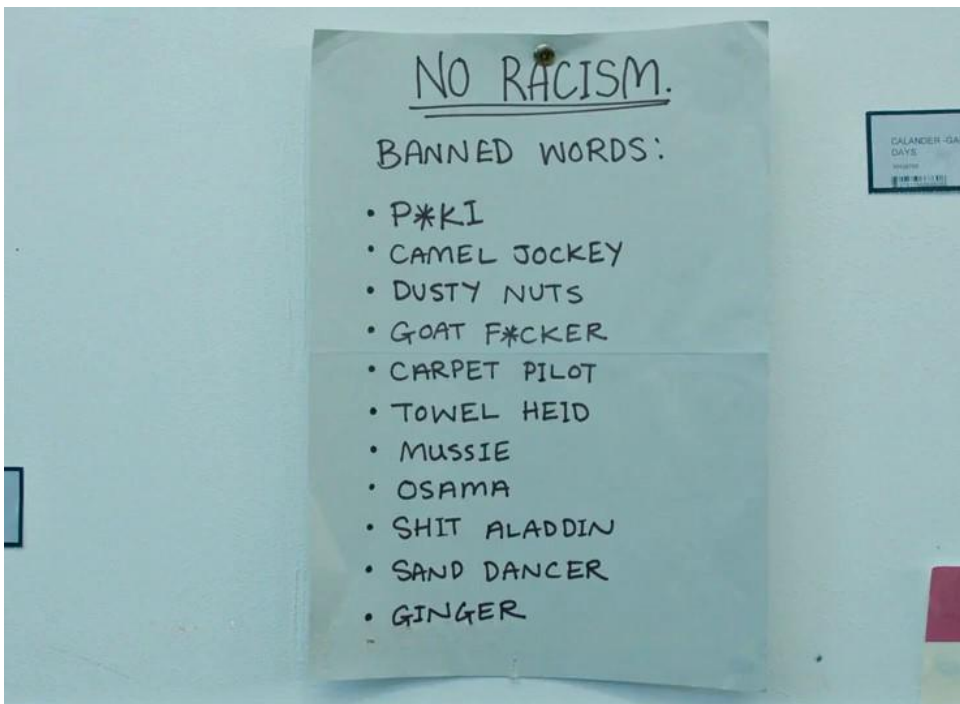 NO RACISM.
BANNED WORDS:
• P*KI
• CAMEL JOCKEY
• DUSTY NUTS
• GOAT F*CKER
• CARPET PILOT
• TOWEL HEID
• MUSSIE
• OSAMA
• SHIT ALADDIN
• SAND DANCER
• GINGER
CALANDER -GA
DAYS